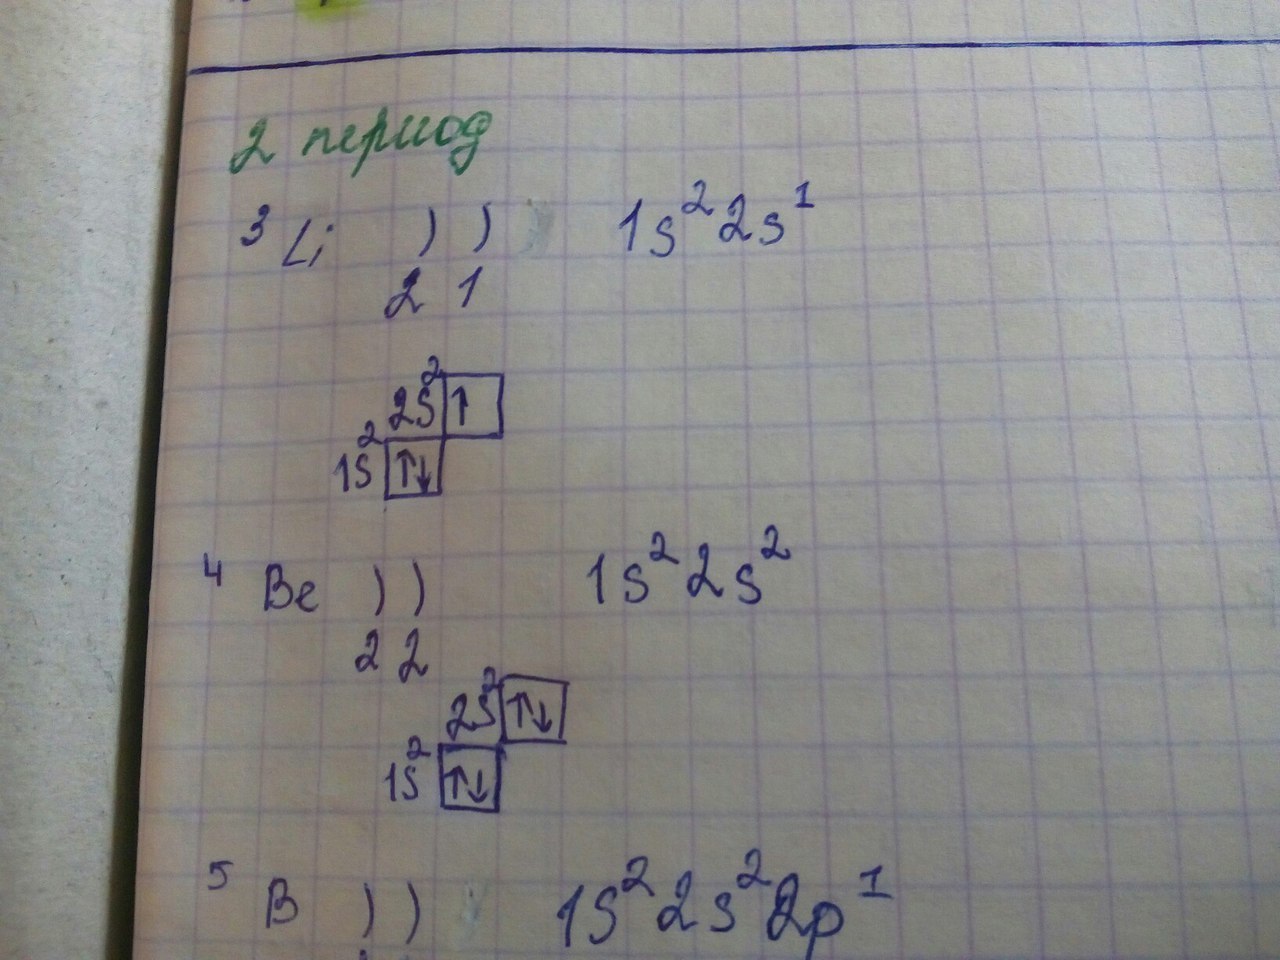 2 период
3 Li ) ) 1s² 2s¹
2 1
2s² ↑
1s² ↑↓
4 Be ) ) 1s² 2s²
2 2
2s² ↑↓
1s² ↑↓
5 B ) ) 1s² 2s² 2p¹